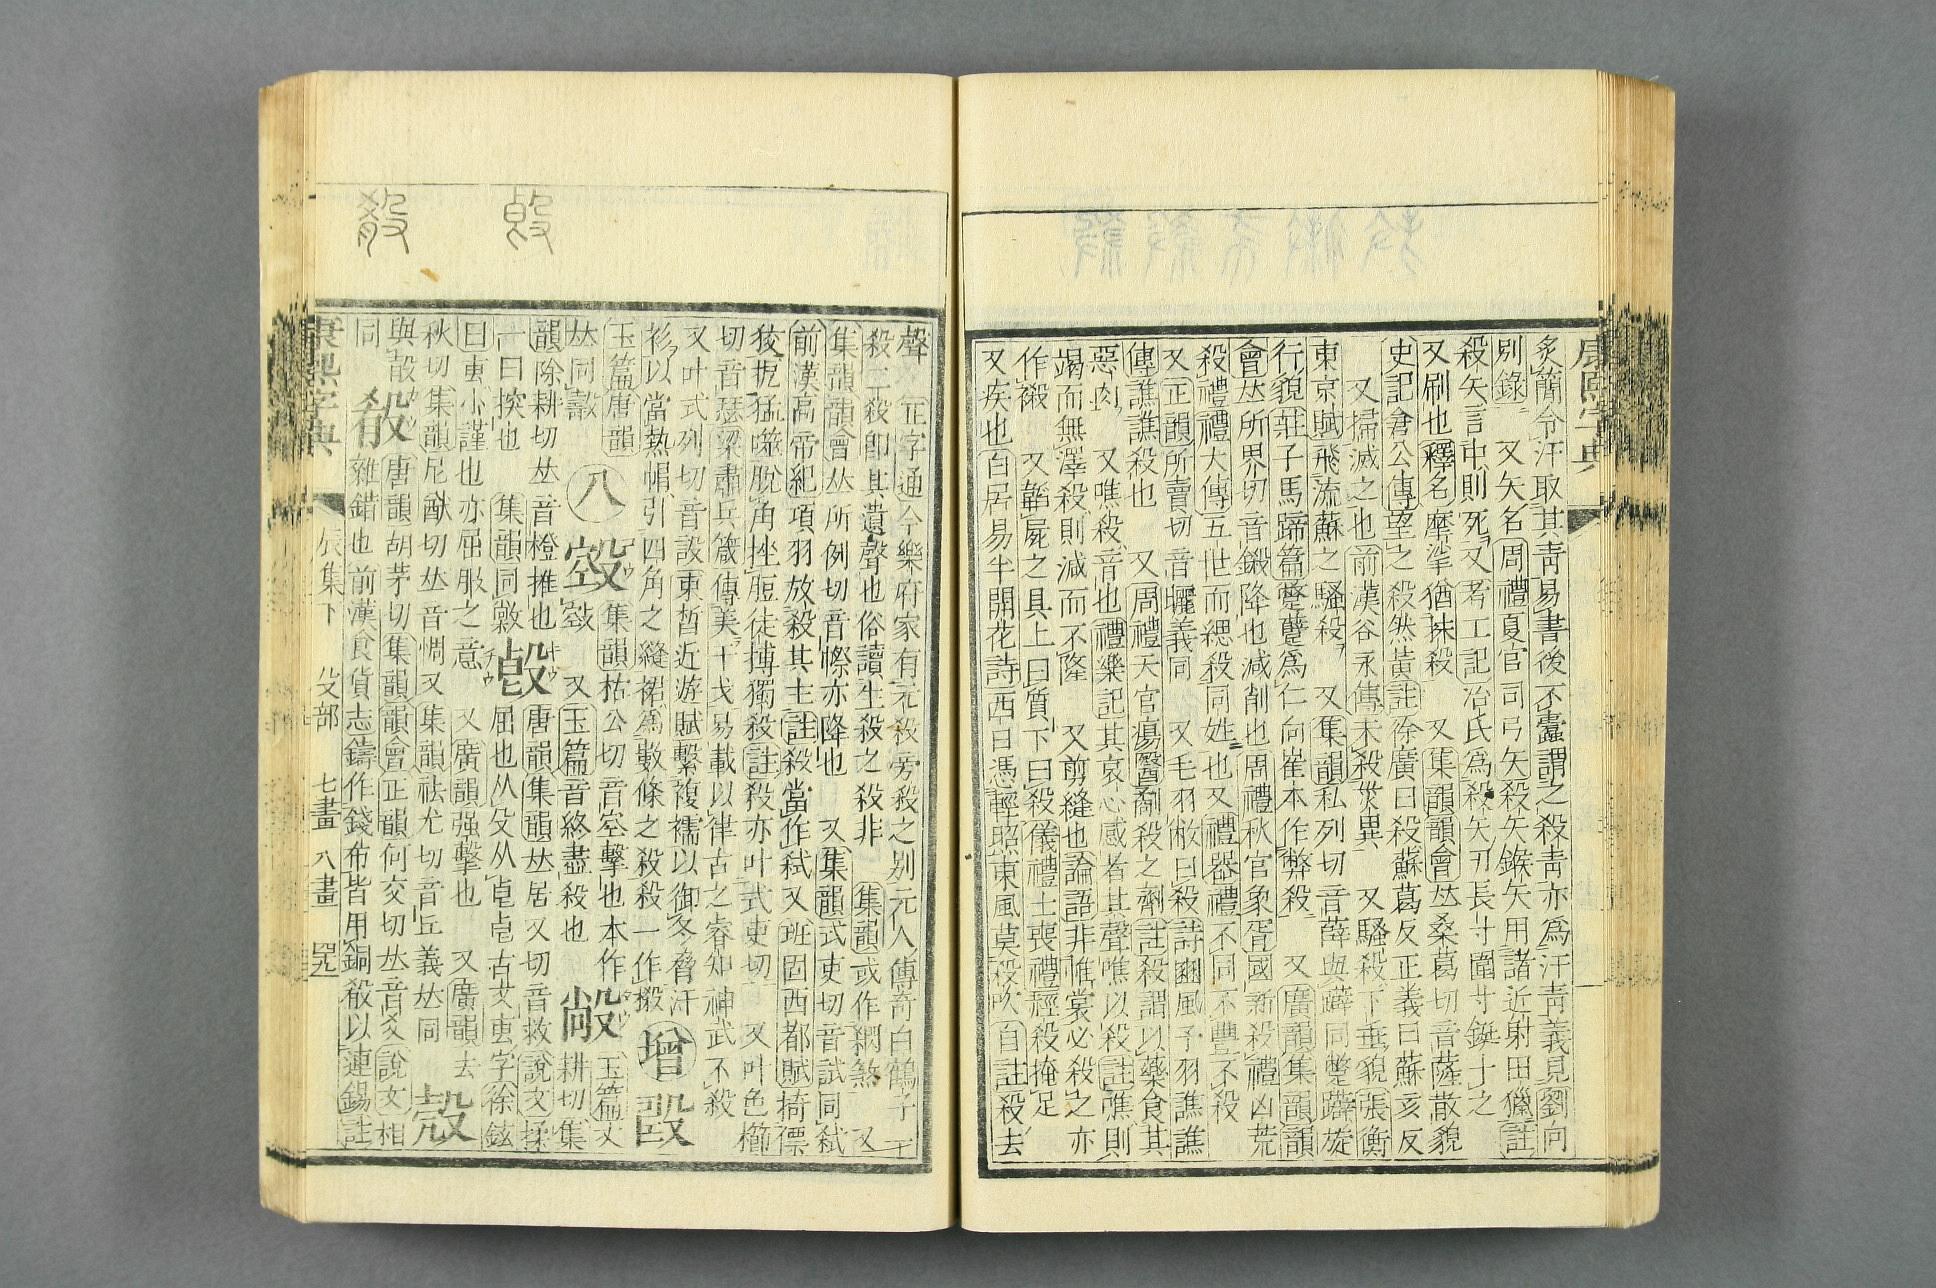 康熙字典
炙簡令汗取其靑易書後不蠹謂之殺靑亦爲汗靑義見劉向
別錄 又矢名周禮夏官司弓矢殺矢鍭矢用諸近射田獵註
殺矢言中則死又考工記冶氏爲殺矢刃長寸圍寸鋌十之
又刷也釋名摩挲猶抹殺 又集韻韻會𠀤桑葛切音薩散貌
史記倉公傳望之殺然黃註徐廣曰殺蘇葛反正義曰蘇亥反
又掃滅之也前漢谷永傳末殺災異 又騷殺下垂貌張衡
東京賦飛流蘇之騷殺 又集韻私列切音薛與躠同蹩躠旋
行貌莊子馬蹄篇蹩躠爲仁向崔本作弊殺 又廣韻集韻韻
會𠀤所界切音鎩降也減削也周禮秋官象胥國新殺禮凶荒
殺禮禮大傳五世而緦殺同姓也又禮器禮不同不豐不殺
又正韻所賣切音曬義同 又毛羽敝曰殺詩豳風予羽譙譙
傳譙譙殺也 又周禮天官瘍醫劀殺之劑註殺謂以藥食其
惡肉 又噍殺音也禮樂記其哀心感者其聲噍以殺註噍則
竭而無澤殺則減而不隆 又剪縫也論語非帷裳必殺之亦
作𧛓 又韜屍之具上曰質下曰殺儀禮士喪禮經殺掩足
又疾也白居易半開花詩西日憑輕照東風莫殺吹自註殺去
聲 又正字通今樂府家有元殺旁殺之别元人傳奇白鶴子一
殺二殺卽其遺聲也俗讀生殺之殺非 集韻或作𢽘煞 又
集韻韻會𠀤所例切音㡜亦降也 又集韻式吏切音試同弒
前漢高帝紀項羽放殺其主註殺當作弒又班固西都賦掎僄
狡扼猛噬脫角挫脰徒搏獨殺註殺亦叶式吏切 又叶色櫛
切音瑟梁肅兵箴傳美干戈易載以律古之睿知神武不殺
又叶式列切音設束晳近遊賦繫複襦以御冬脅汗
衫以當熱帽引四角之縫裙爲數條之殺殺一作摋 增 毃
玉篇唐韻集韻枯公切音空擊也本作 㪣 玉篇丈
𠀤同㲈 八 㲁 㪇 又玉篇音終盡殺也 耕切集
韻除耕切𠀤音橙推也 㱿 唐韻集韻𠀤居又切音救說文揉
一曰揬也 集韻同㪣 屈也从殳从皀皀古叀字徐鉉
曰叀小謹也亦屈服之意 又廣韻强擊也 又廣韻去
秋切集韻尼猷切𠀤音惆又集韻祛尤切音丘義𠀤同 㱿
與㪉同 殽 唐韻胡茅切集韻韻會正韻何交切𠀤音爻說文相
雜錯也前漢食貨志鑄作錢布皆用銅殽以連錫註
康熙字典 辰集下 殳部 七畫 八畫 四九